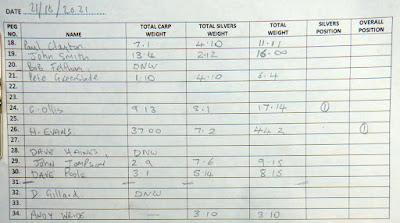 DATE 21/10/2021
PEG NO. NAME TOTAL CARP WEIGHT TOTAL SILVERS WEIGHT TOTAL WEIGHT SILVERS POSITION OVERALL POSITION
18. Paul Clapton 7.1 4.10 11.11
19. John Smith 13.4 2.12 16.00
20. Bob Feltham DNW
21. Pete Greenslade 1.10 4.10 6.4
22.
23.
24. G. Ollis 9.13 8.1 17.14 1
25.
26. H. EVANS. 37.00 7.2 44.2 1
27.
28. DAVE HAINES DNW
29. JOHN TOMPSON 2.9 7.6 9.15
30. DAVE POOLE 3.1 5.14 8.15
31.
32. D. Gillard DNW
33.
34. ANDY WRIDE — 3.10 3.10